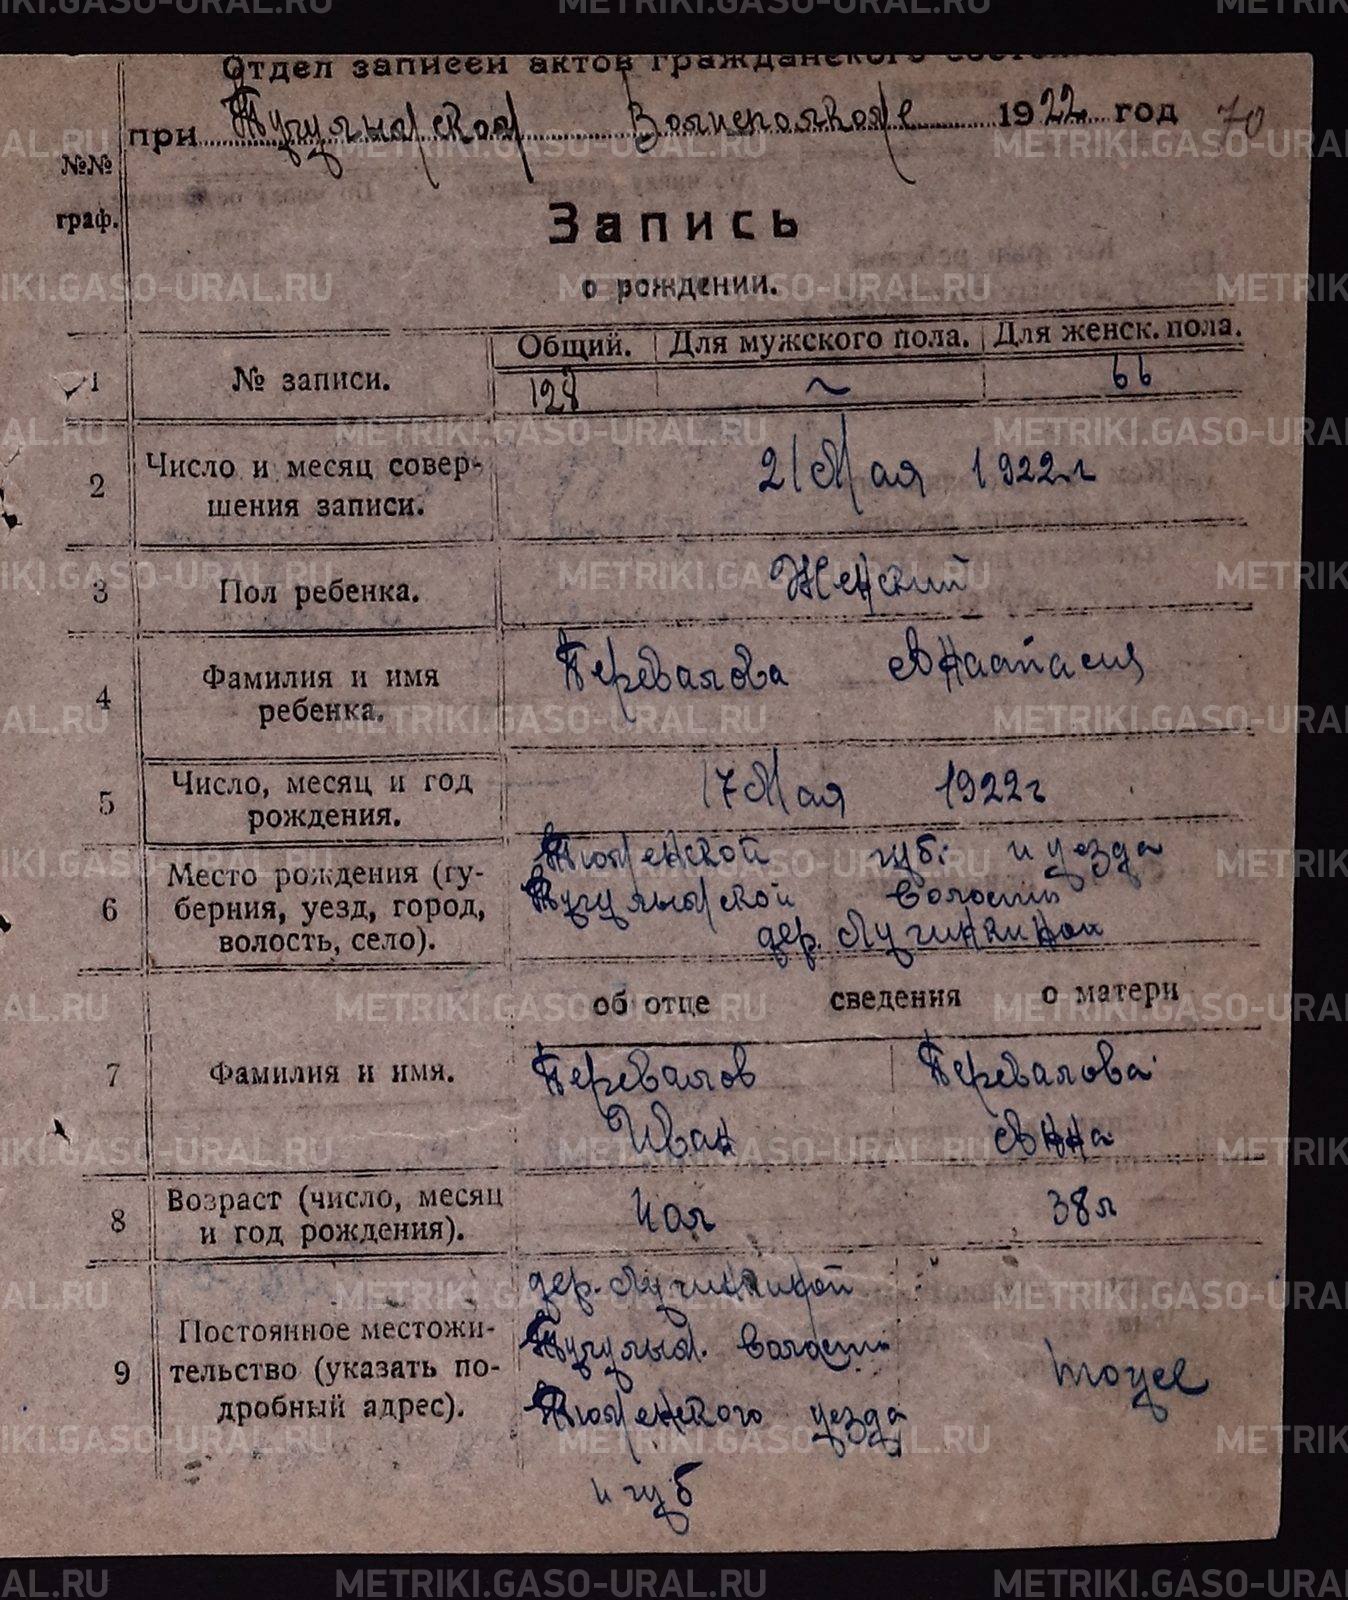 Отдел записей актов гражданского
при Тугулымском Волисполкоме 1922 год 70
№№
граф.
Запись
о рождении.
Общий. Для мужского пола. Для женск. пола.
1 № записи. 128 ~ 66
2 Число и месяц совер-
шения записи. 21 Мая 1922 г
3 Пол ребенка. Женский
4 Фамилия и имя
ребенка. Перевалова Анастасия
5 Число, месяц и год
рождения. 17 Мая 1922 г
6 Место рождения (гу-
берния, уезд, город,
волость, село). Тюменской губ. и уезда
Тугулымской волости
дер. Лучинкиной
об отце сведения о матери
7 Фамилия и имя. Перевалов Перевалова
Иван Анна
8 Возраст (число, месяц
и год рождения). 38 л
9 Постоянное местожи-
тельство (указать по-
дробный адрес). дер. Лучинкиной
Тугулым. волости тоже
Тюменского уезда
и губ
METRIKI.GASO-URAL.RU